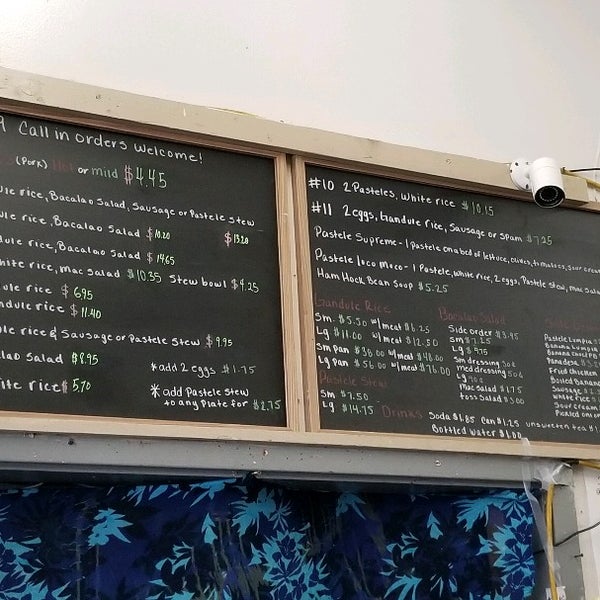 9 Call in orders welcome!
(Pork) Hot or mild $4.45
ule rice, Bacalao Salad, Sausage or Pastele Stew
$13.20
ule rice, Bacalao Salad $10.20
dule rice, Bacalao Salad $14.65
hite rice, mac salad $10.35 Stew bowl $4.25
ule rice $6.95
ndule rice $11.40
ule rice & Sausage or Pastele Stew $9.95
lao Salad $8.95
*add 2 eggs $1.75
ite rice $5.70
*add Pastele Stew
to any Plate for $2.75
#10 2 Pasteles, white rice $10.15
#11 2 eggs, Gandule rice, Sausage or spam $7.25
Pastele Supreme - 1 Pastele on a bed of lettuce, olives, tomatoes, sour crea
Pastele Loco moco - 1 Pastele, white rice, 2 eggs, Pastele stew, mac sala
Ham Hock Bean Soup $5.25
Gandule Rice
Sm. $5.50 w/meat $6.25
Lg $11.00 w/meat $12.50
Sm pan $38.00 w/meat $48.00
Lg pan $56.00 w/meat $76.00
Pastele Stew
Sm $7.50
Lg $14.75
Bacalao Salad
Side order $3.95
Sm $7.25
Lg $9.75
Sm dressing 30¢
med dressing 50¢
Lg 90¢
mac Salad $1.75
toss Salad $3.00
Pastele Lumpia $
Banana Lumpia $
Panadesa $3.25
Fried Chicken
Boiled Banana
Sausage $2.
White rice $
Sour Cream
Pickled oni
Drinks Soda $1.85 Can $1.25 unsweeten tea $1.
Bottled water $1.00